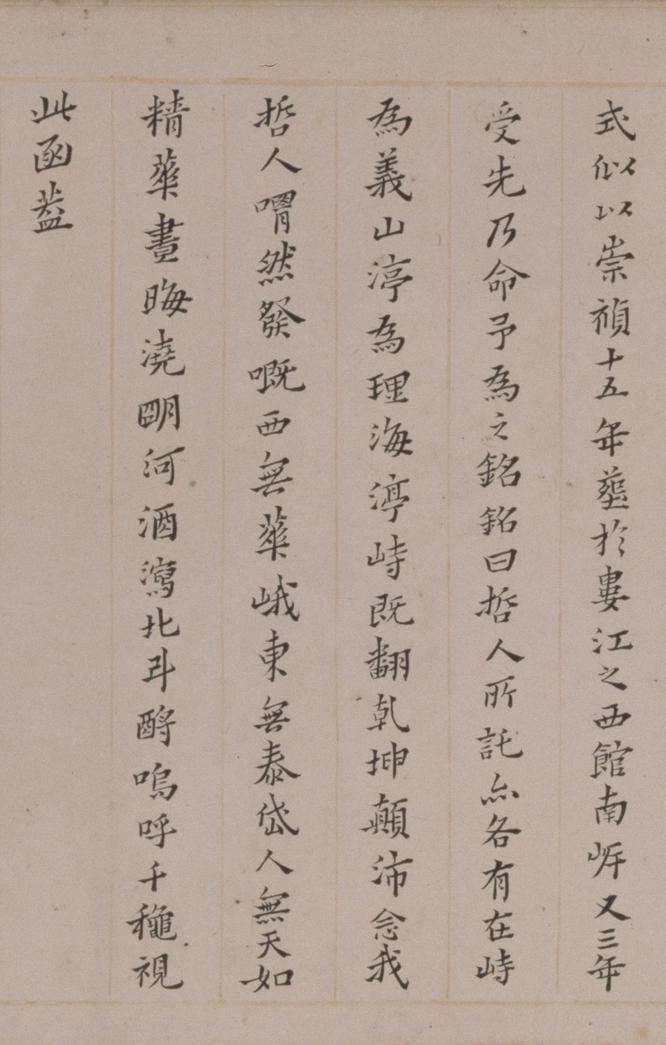 式似以崇禎十五年葬於婁江之西館南岸又三年
受先乃命予為之銘銘曰哲人所託亦各有在峙
為義山渟為理海渟峙既翻乾坤顛沛念我
哲人喟然發嘅西無華峨東無泰岱人無天如
精華晝晦澆明河酒瀉北斗酹嗚呼千龝視
此函蓋